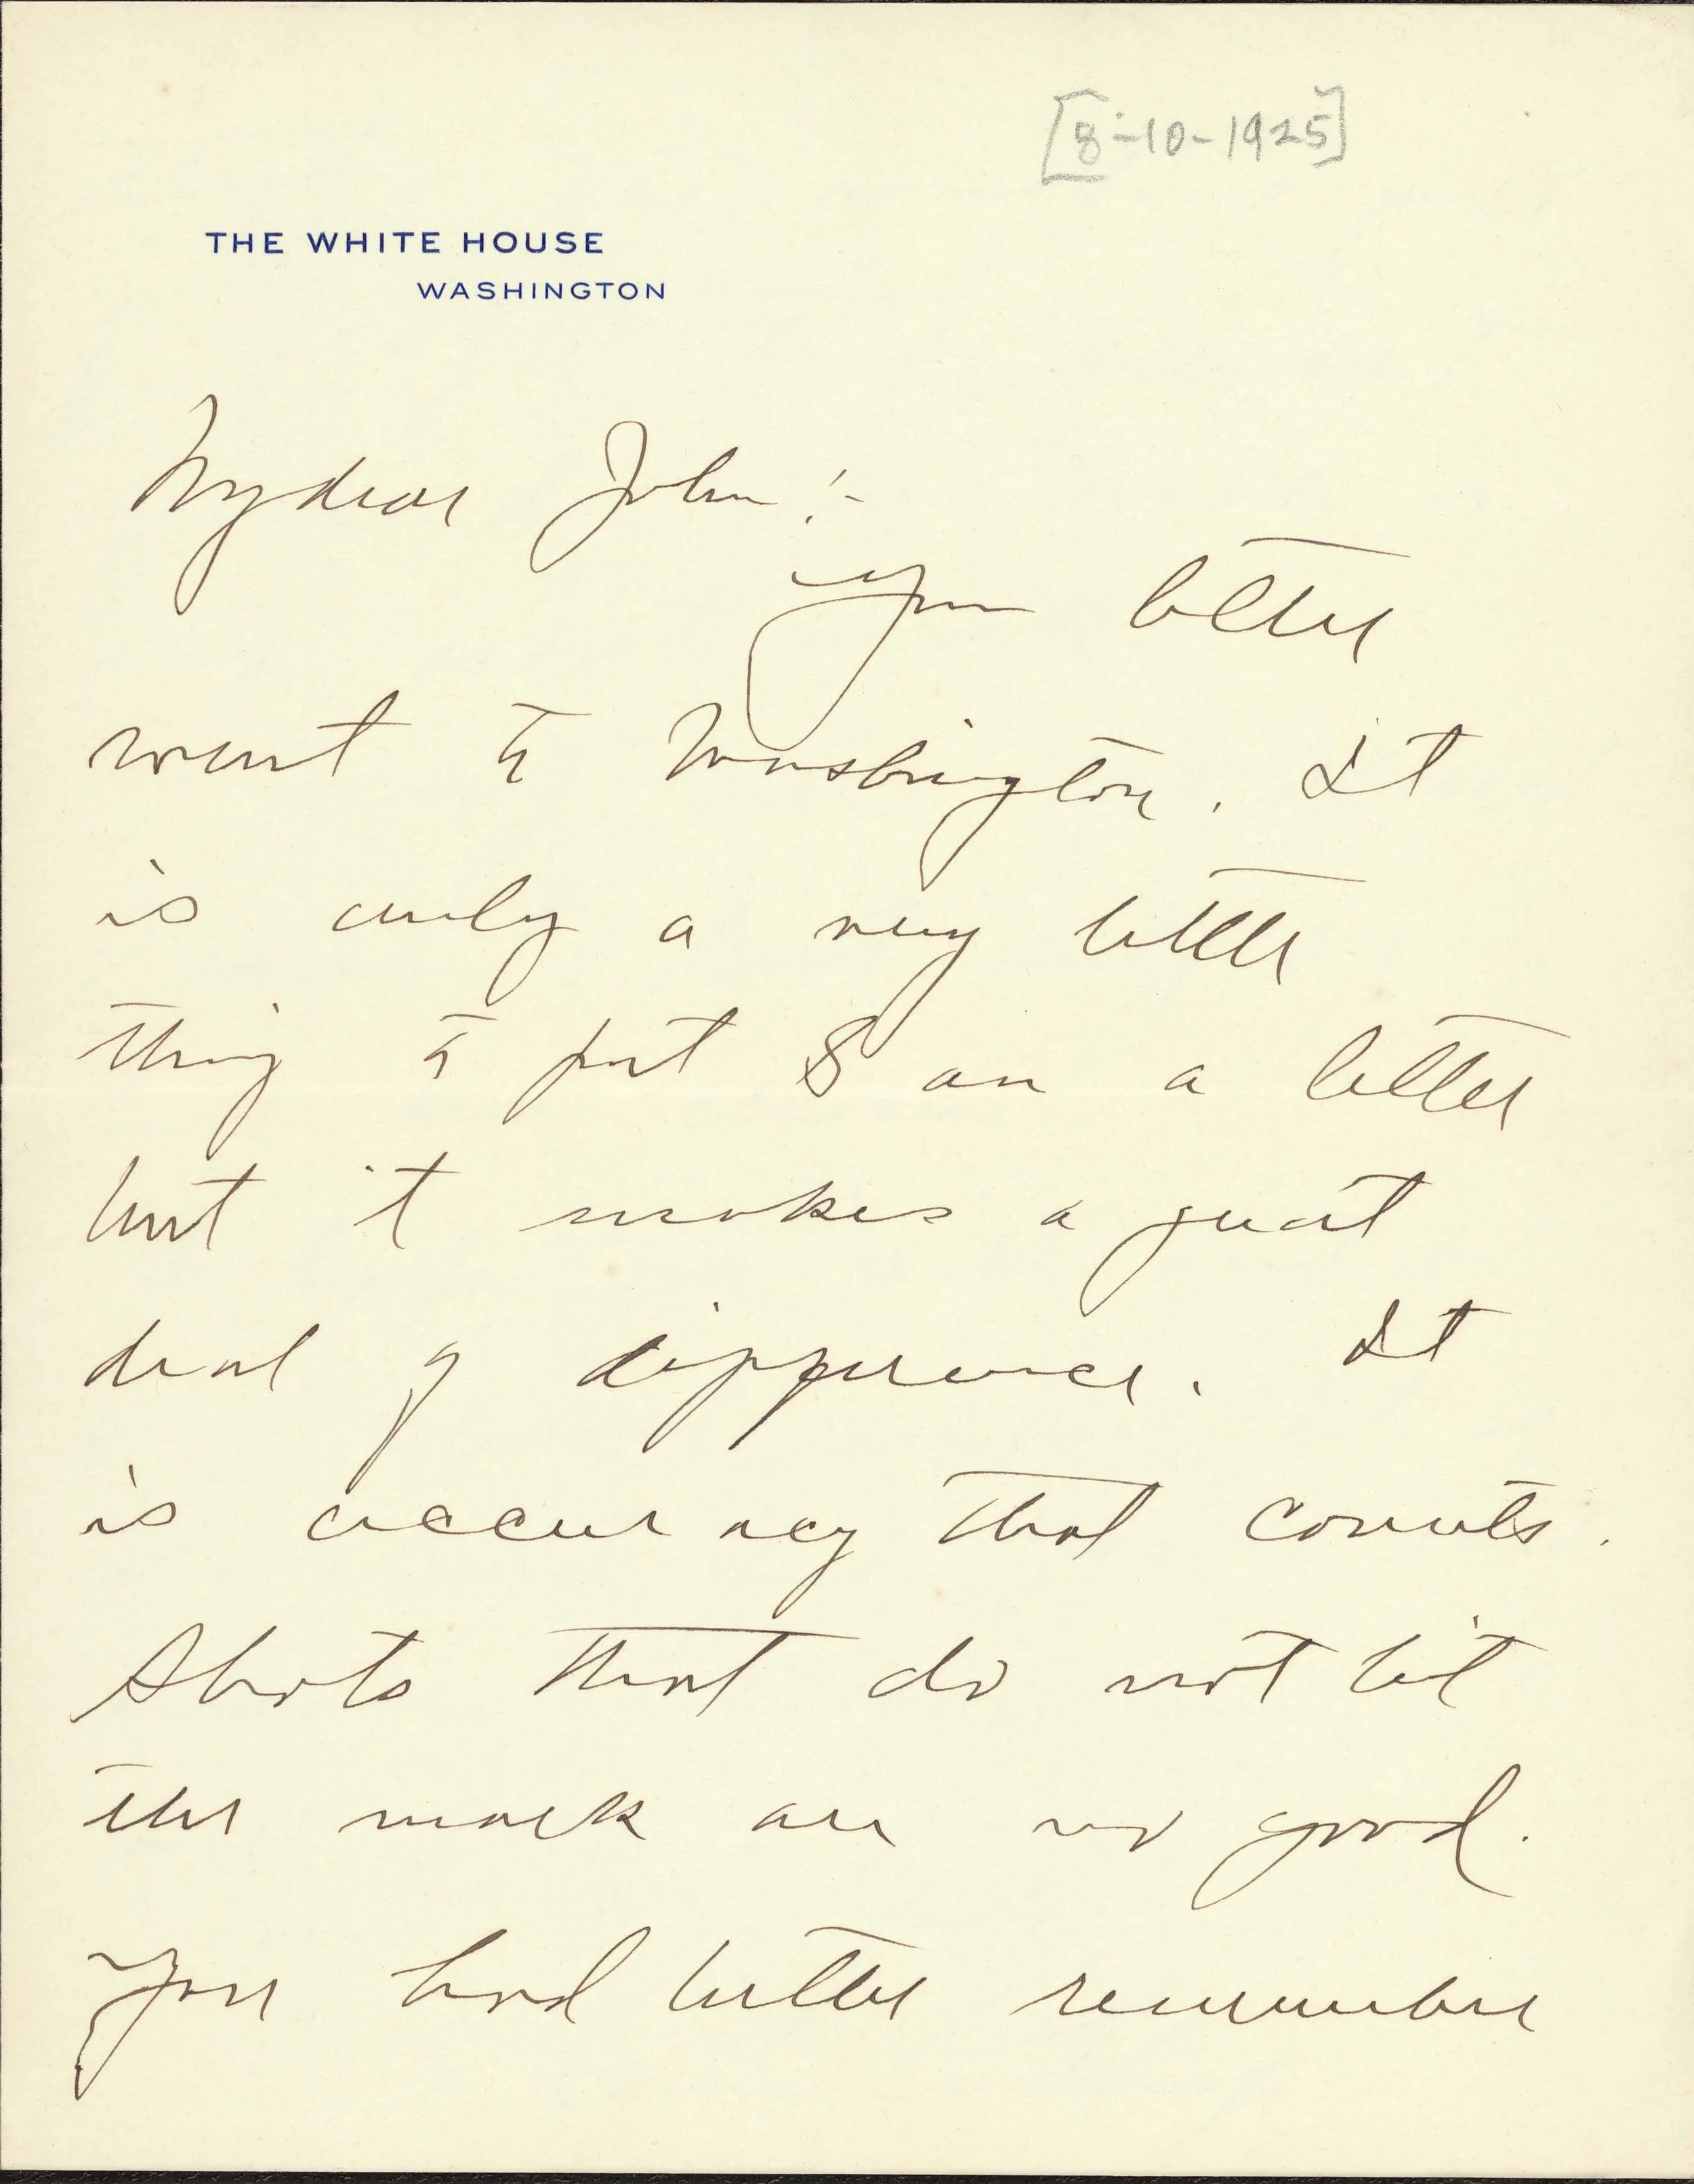 [8-10-1925]
THE WHITE HOUSE
WASHINGTON
My dear John:-
Your letter
went to Washington. It
is only a very little
thing to put S on a letter
but it makes a great
deal of difference. It
is accuracy that counts.
Shots that do not hit
the mark are no good.
You had better remember